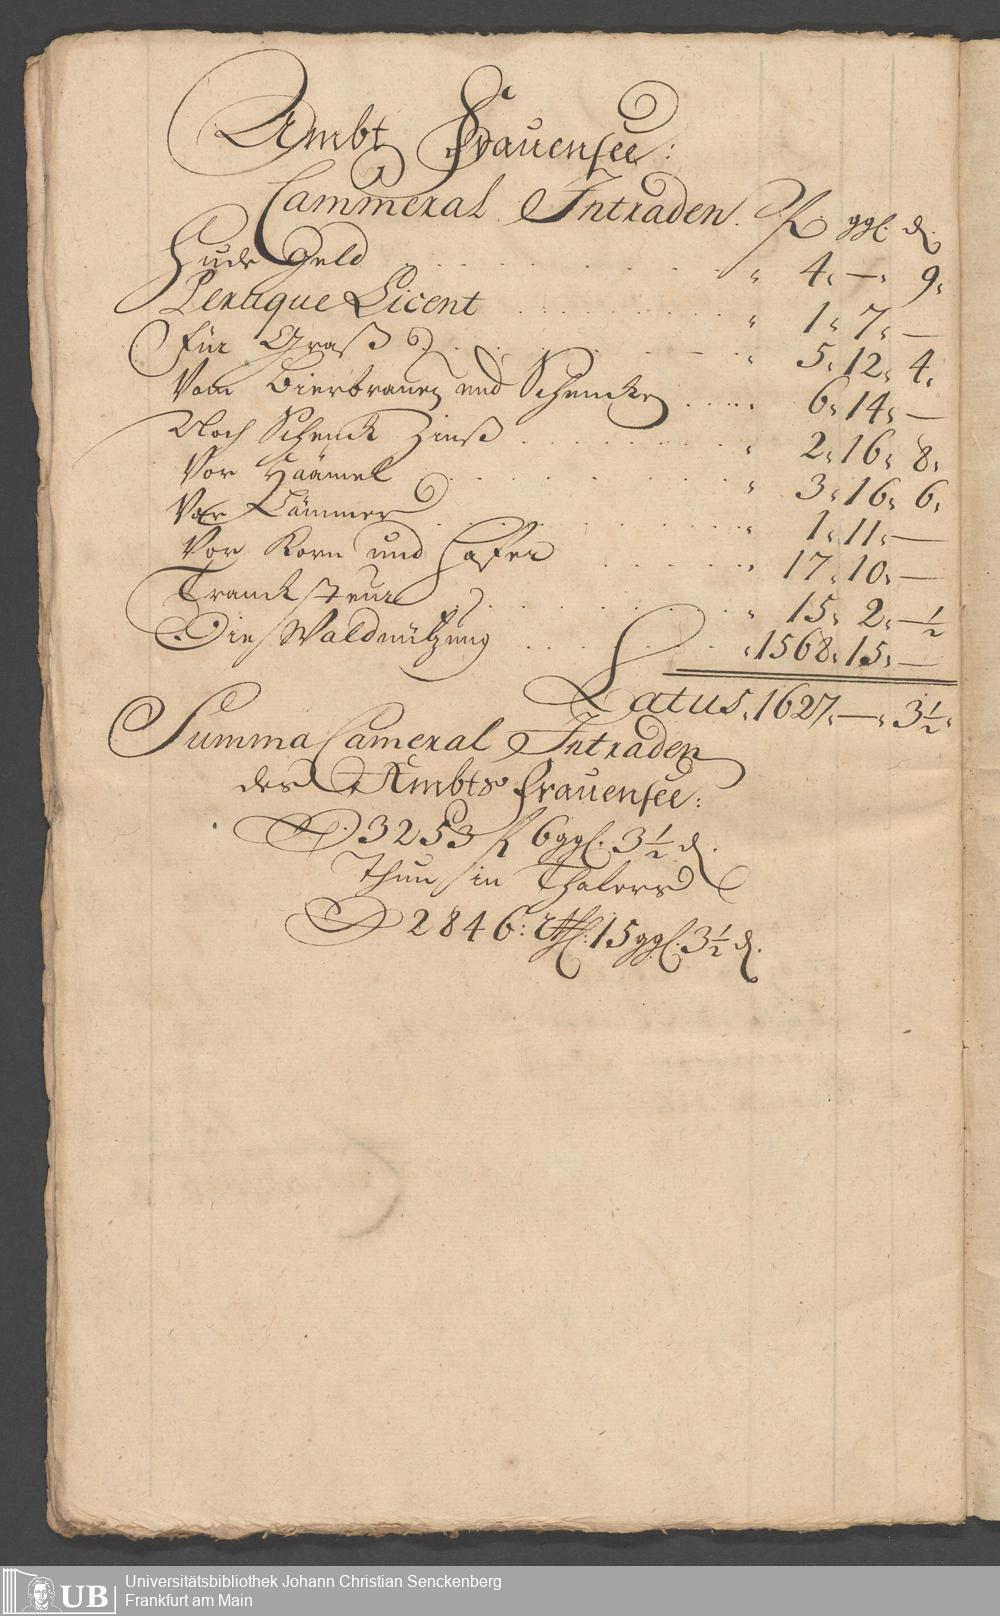 Ambt Frauensee:
Cammeral Intraden. fl ggl. d.
Hude Geld . . . . . . . . . " 4. —. 9.
Peruque Licent . . . . . . . " 1. 7. —
Für Graß . . . . . . . " 5. 12. 4.
Vom Bierbrauen und Schencken . . . . . 6. 14. —
Noch Schenck Zinß . . . . . . . " 2. 16. 8.
Vor Häämel . . . . . . . . " 3. 16. 6.
Vor Lämmer . . . . . . . . " 1. 11. —
Vor Korn und Hafer . . . . . . " 17. 10. —
Tranck steur . . . . . . . . " 15. 2. — ½
Die Waldnützung . . . . . . . " 1568. 15. —
Latus. 1627. —. 3½.
Summa Cameral Intraden
des Ambts Frauensee:
3253 fl 6 ggl. 3½ d.
Thun in Thalern
2846: rthl: 15 ggl. 3½ d.
UB Universitätsbibliothek Johann Christian Senckenberg
Frankfurt am Main